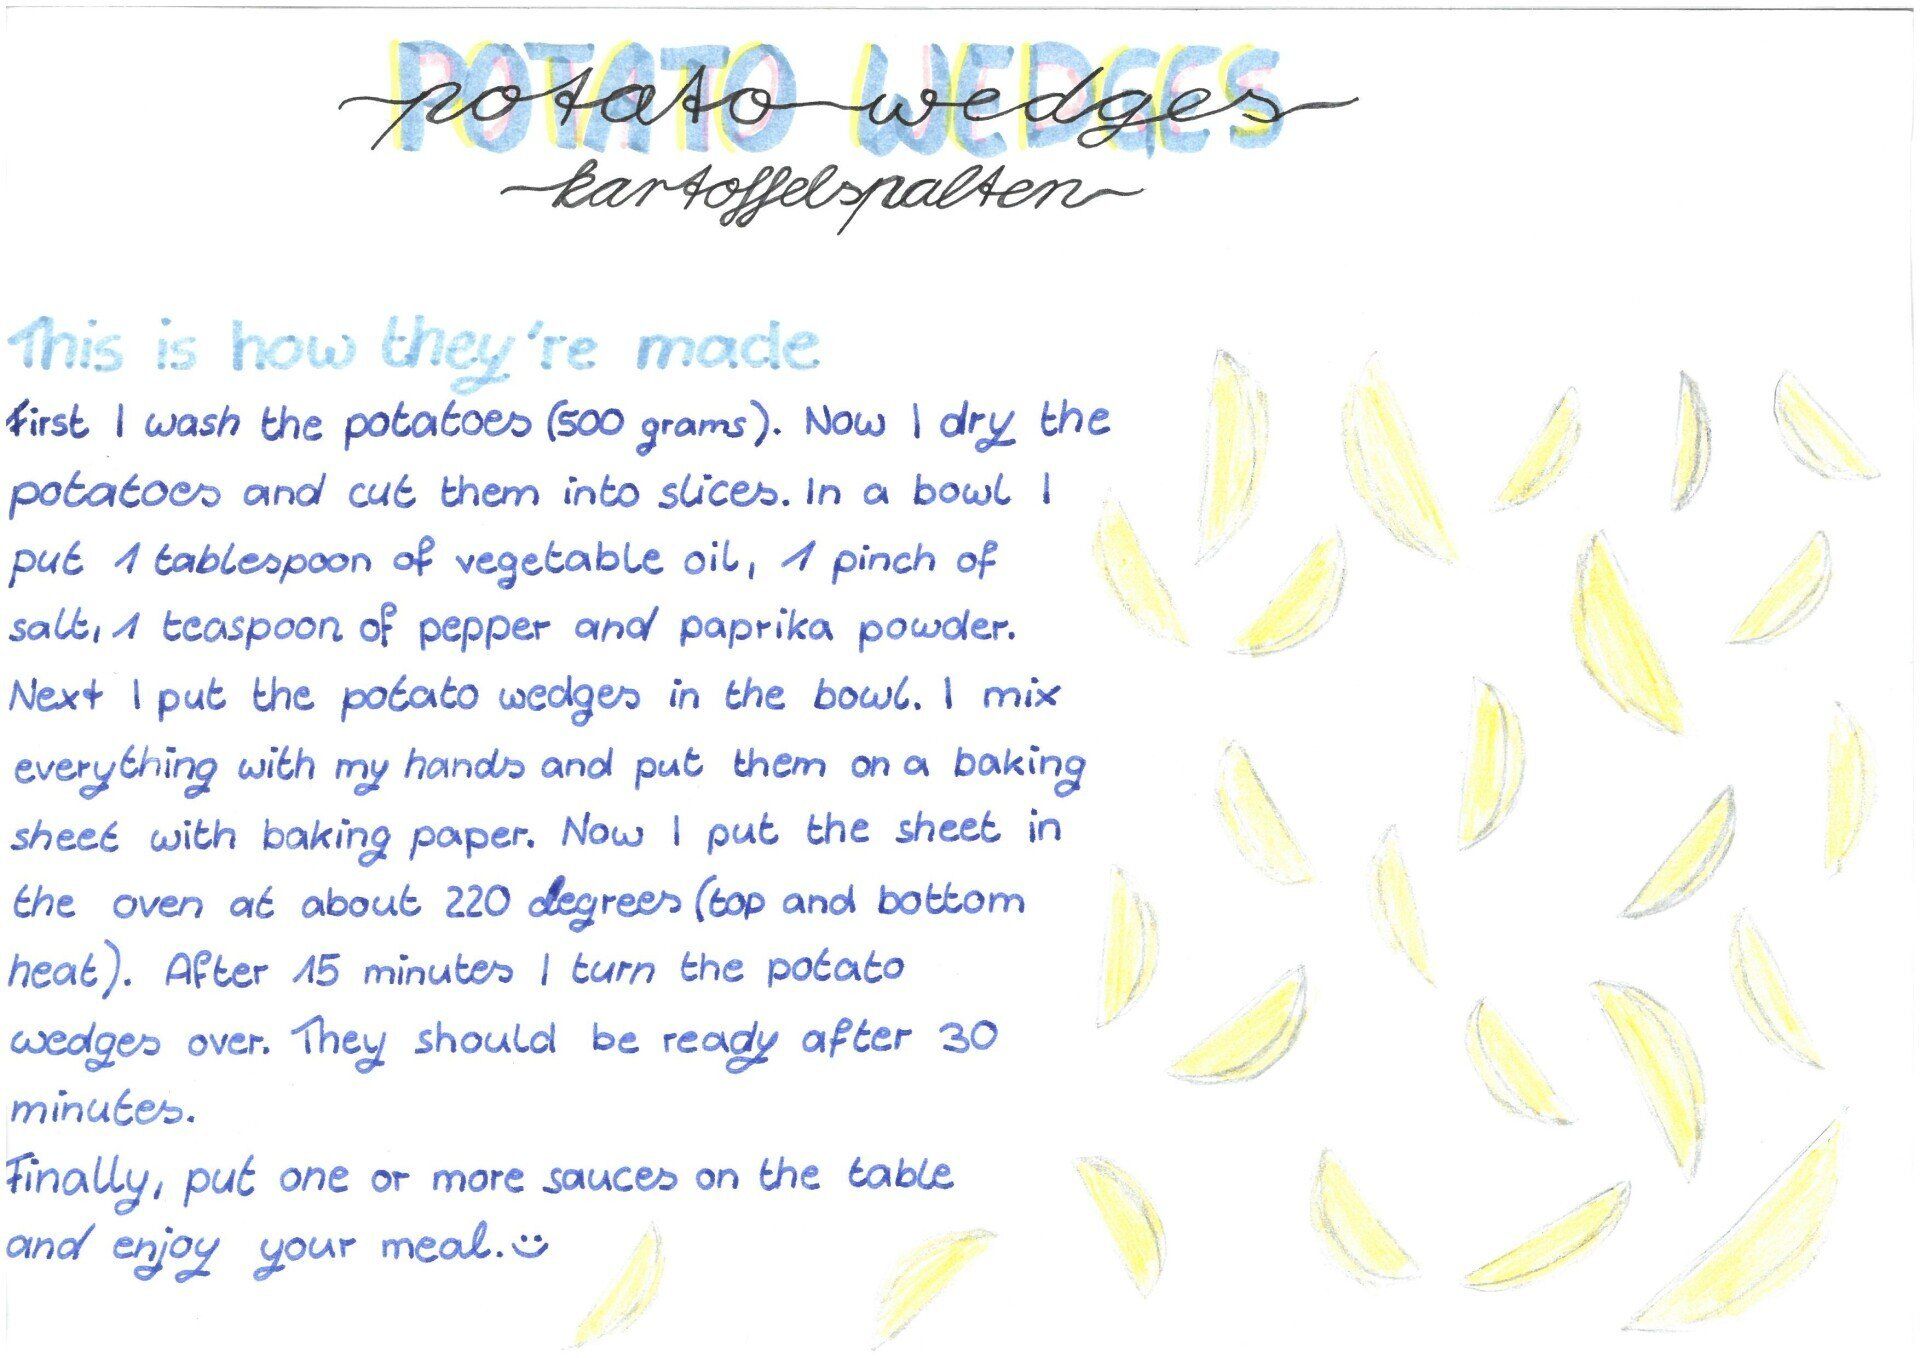 POTATO WEDGES
potato wedges
kartoffelspalten
This is how they're made
First I wash the potatoes (500 grams). Now I dry the
potatoes and cut them into slices. In a bowl I
put 1 tablespoon of vegetable oil, 1 pinch of
salt, 1 teaspoon of pepper and paprika powder.
Next I put the potato wedges in the bowl. I mix
everything with my hands and put them on a baking
sheet with baking paper. Now I put the sheet in
the oven at about 220 degrees (top and bottom
heat). After 15 minutes I turn the potato
wedges over. They should be ready after 30
minutes.
Finally, put one or more sauces on the table
and enjoy your meal. :)